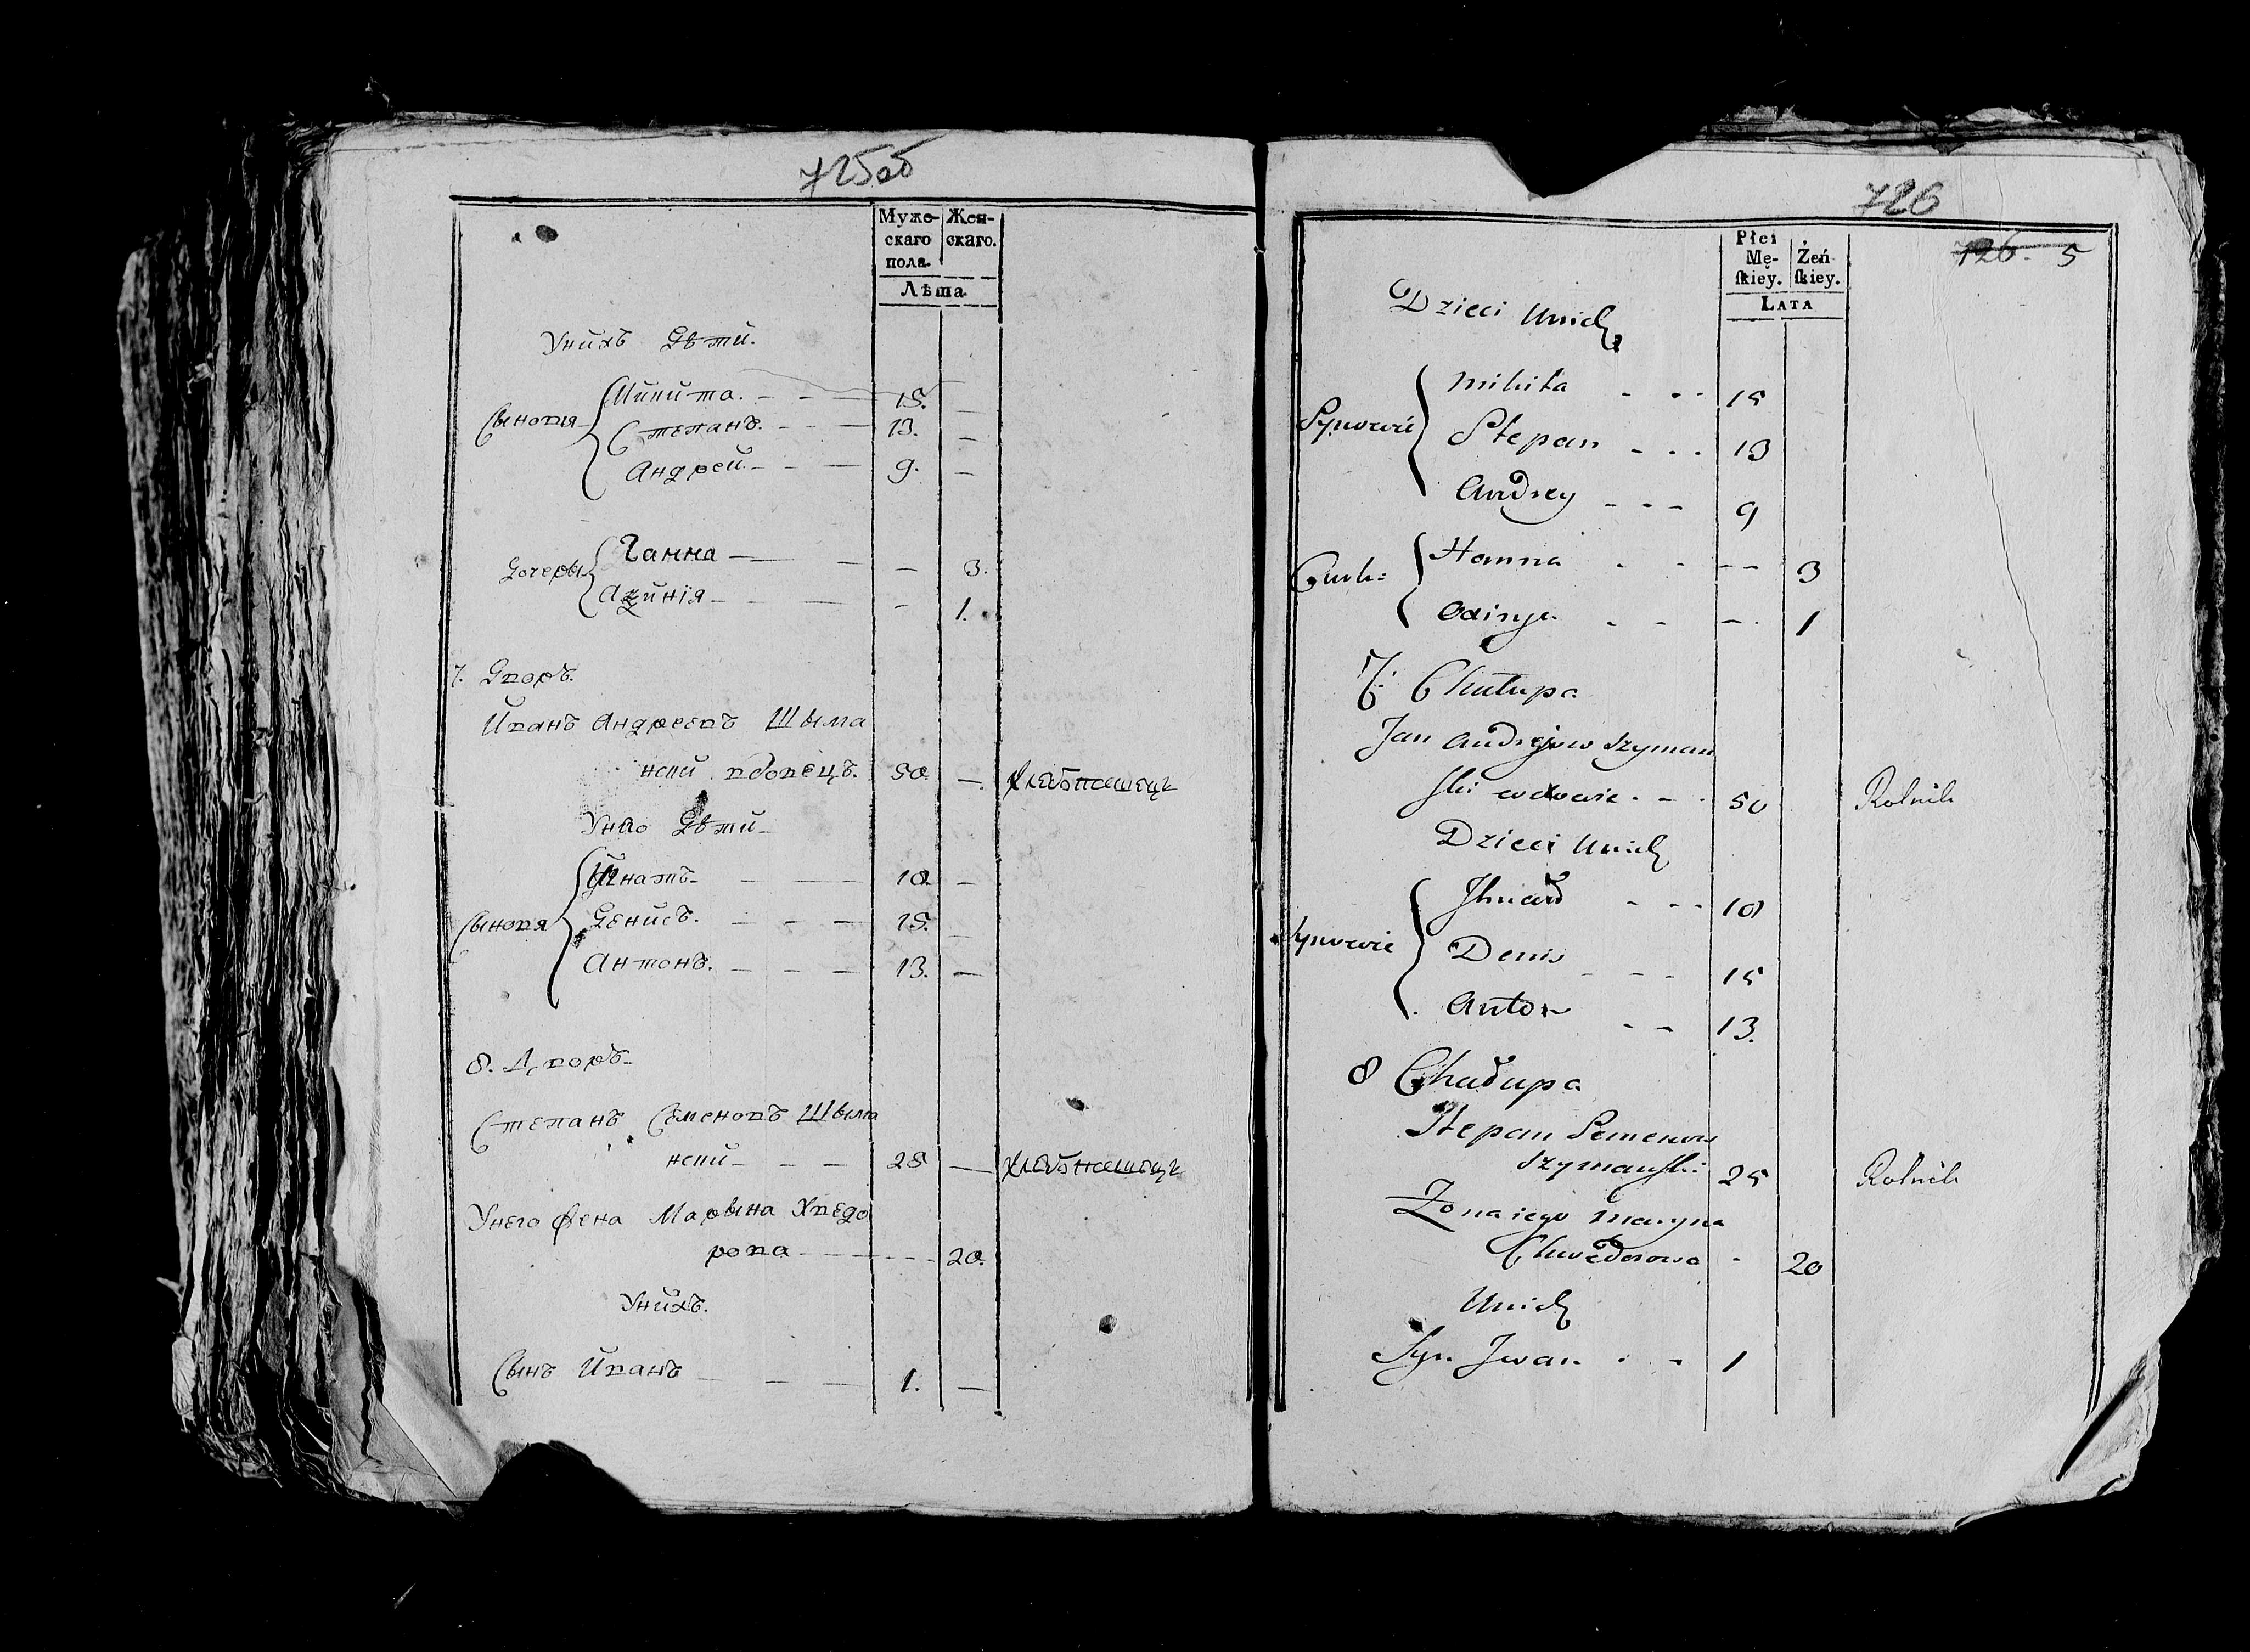 725об
Муже-
скаго
пола.
Жен-
скаго.
Лѣта.
Унихъ Дѣти.
Сыновя
Микита. 15. —
Степанъ. 13. —
Андрей 9. —
Дочеры
Ганна — 3.
1.
7. Дворъ.
Иванъ Андреевъ Шыма
нски вдовецъ. 50 — Хлебопашецъ
Унго Дѣти
Сыновя
Игнатъ 18 —
Денисъ. 15. —
Антонъ. 13. —
8. Дворъ
Степанъ Семеновъ Шыма
нски 25 — Хлебопашецъ
Унего жена Марына Хведо
рова 20.
Унихъ.
Сынъ Иванъ 1. —
726
726. 5
Płci
Mę-
ſkiey.
Żeń
ſkiey.
LATA
Dzieci Unich
Synowie
Mikita 15
Stepan 13
Andrey 9
Hanna 3
1
7. Chałupa
Jan Andrejow Szyman
ski wdowiec 50 Rolnik
Dzieci Unich
Synowie
Denis 15
Anton 13.
8 Chałupa
Stepan Semenow
Szymanski 25 Rolnik
Żona iego Maryna
Chwedorowa 20
Unich
Syn Jwan 1